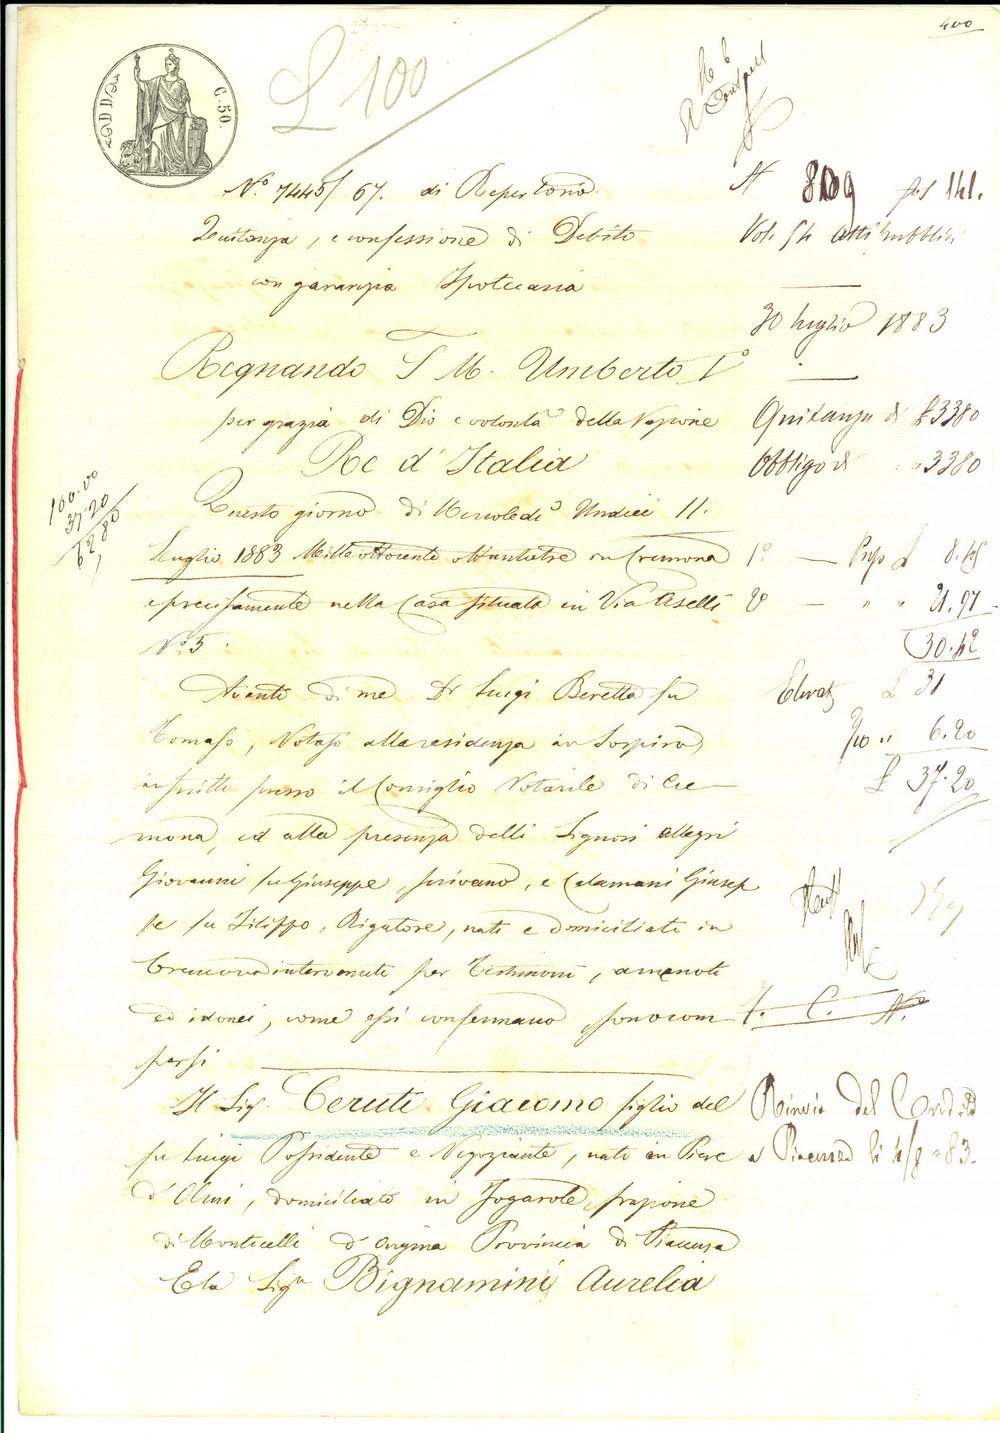 400
C. 50.
L 100
N.º 7445/67. di Repertorio.
Quitanza, e confessione di Debito
con garanzia Ipotecaria
Regnando S. M. Umberto Iº
per grazia di Dio e volontà della Nazione
Re d'Italia
Questo giorno di Mercoledì Undici 11.
Luglio 1883 Mille ottocento ottantatre in Cremona
e precisamente nella Casa situata in Via Aselli
Nº 5.
Avanti di me Dr Luigi Beretta fu
Tomaso, Notajo alla residenza in Sospiro,
inscritto presso il Consiglio Notarile di Cre-
mona, ed alla presenza delli Signori Allegri
Giovanni fu Giuseppe, scrivano, e Calamani Giusep
pe fu Filippo, Rigatore, nati e domiciliati in
Cremona intervenuti per Testimoni, a me noti
ed idonei, come essi confermano, sono com-
parsi
Il Sig. Ceruti Giacomo figlio del
fu Luigi Possidente e Negoziante, nato in Pieve
d'Olmi, domiciliato in Fogarole, frazione
di Monticelli d'Ongina Provincia di Piacenza
E la Sigra Bignamini Aurelia
100.00
37.20
62.80
N 809 fol 141.
Vol. 54 Atti Pubblici
30 luglio 1883
Quitanza di £ 3380
Obbligo di " 3380
1º — Prop £ 8.45
2º — " " 21.97
30.42
Elevata £ 31
2/10 " 6.20
£ 37.20
I. C. N.
Rinvio del Credito
a Piacenza li 4/8 = 83.